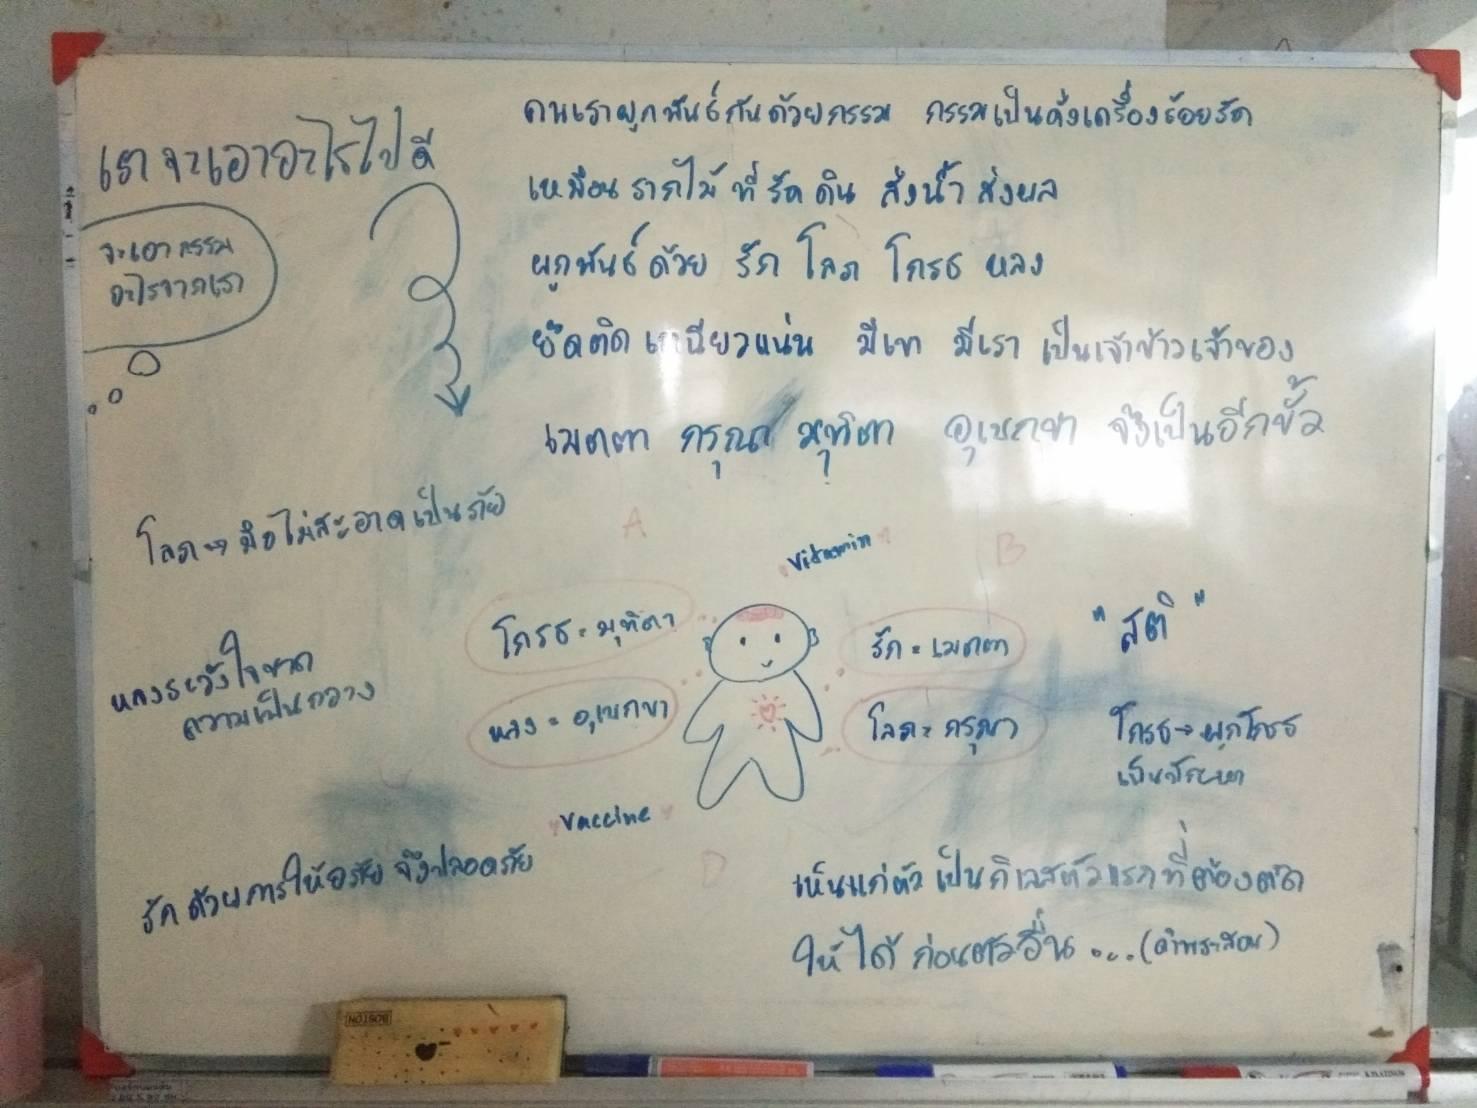 เราจะเอาอะไรไปดี
จะเอากรรม
อะไรจากเรา
คนเราผูกพันธ์กันด้วยกรรม กรรมเป็นดั่งเครื่องร้อยรัด
เหมือนรากไม้ที่รัดดิน ส่งน้ำ ส่งผล
ผูกพันธ์ด้วย รัก โลภ โกรธ หลง
ยึดติด เหนียวแน่น มีเขา มีเรา เป็นเจ้าข้าวเจ้าของ
เมตตา กรุณา มุทิตา อุเบกขา จึงเป็นอีกขั้ว
โลภ → มือไม่สะอาดเป็นภัย
A
Vitamin
B
โกรธ = มุทิตา
รัก = เมตตา
"สติ"
หลงระวังใจขาด
ความเป็นกลาง
หลง = อุเบกขา
โลภ = กรุณา
โกรธ → ผูกโกรธ
เป็น
Vaccine
D
รักด้วยการให้อภัย จึงปลอดภัย
เห็นแก่ตัวเป็นกิเลสตัวแรกที่ต้องตัด
ให้ได้ ก่อนตัวอื่น ...(คำพระสอน)
BOSTON